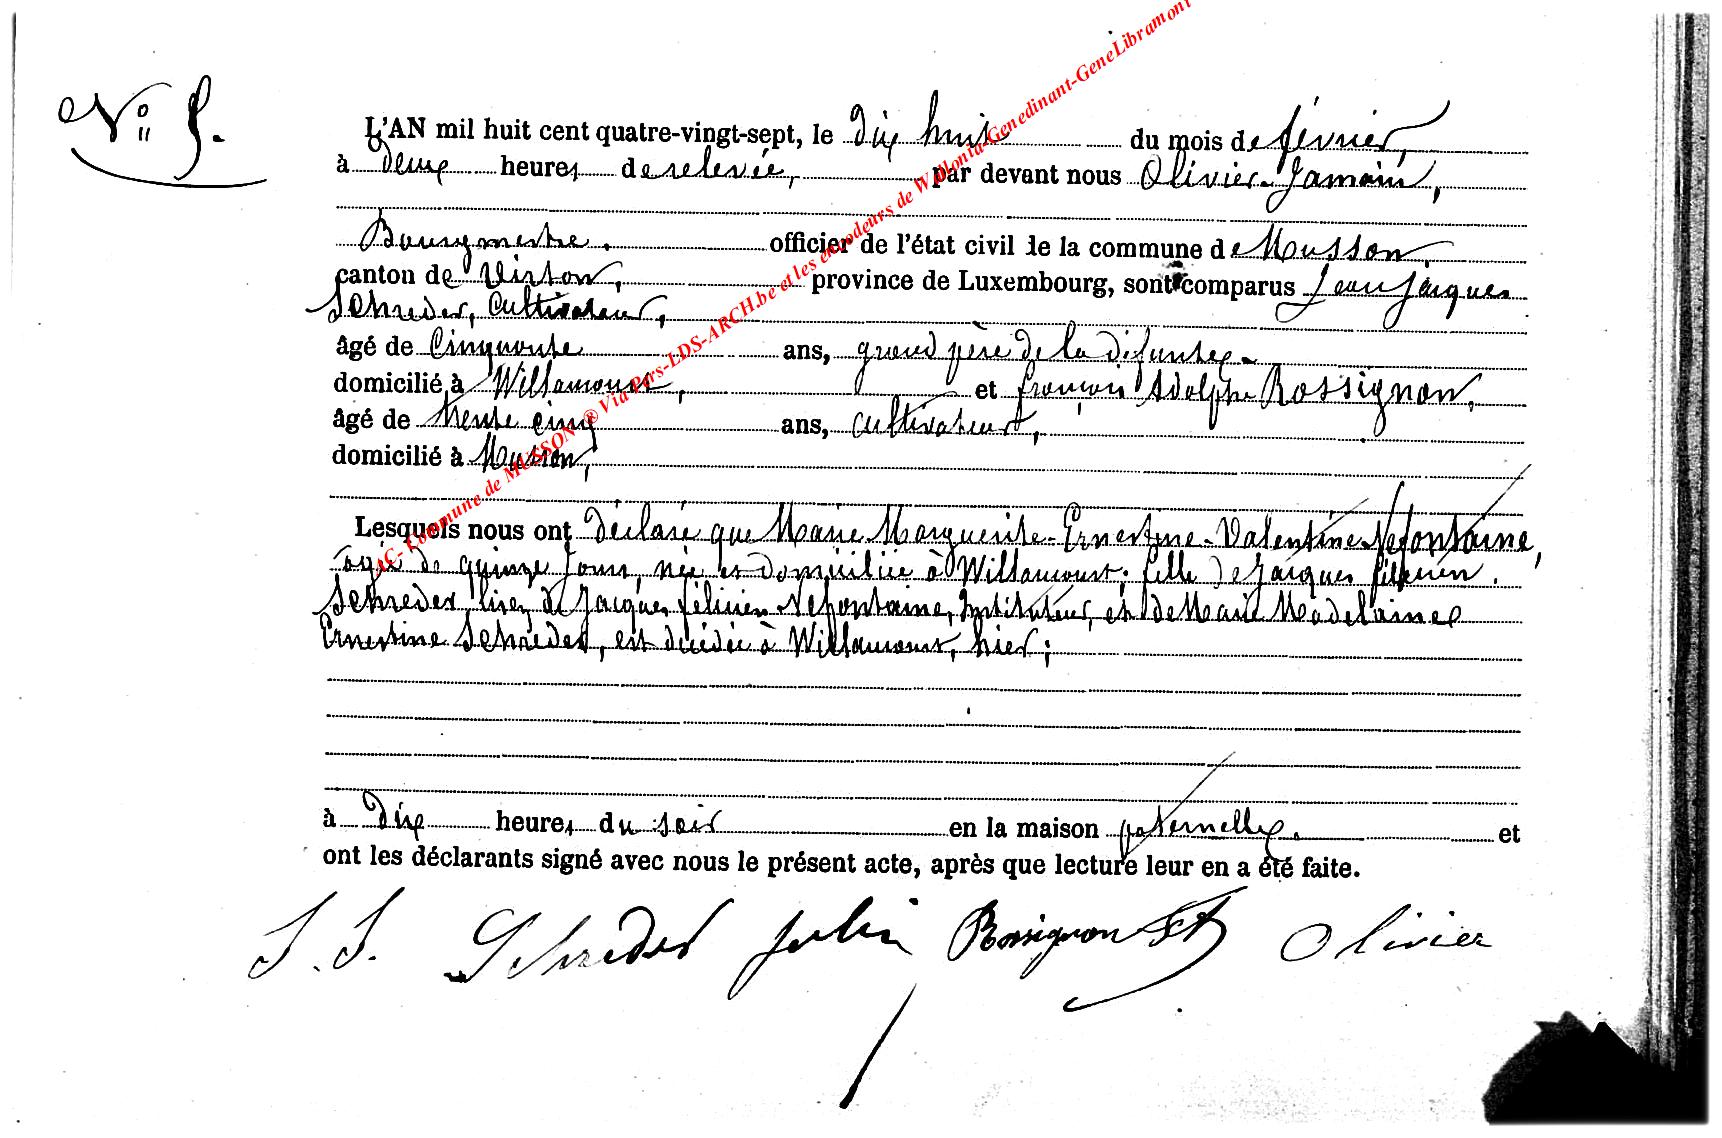 N° 5.
L'AN mil huit cent quatre-vingt-sept, le dix huit du mois de février,
à deux heures de relevée, par devant nous Olivier Jamain,
Bourgmestre. officier de l'état civil de la commune de Musson,
canton de Virton, province de Luxembourg, sont comparus Jean Jacques
Schreder, Cultivateur,
âgé de Cinquante ans, grand père de la défunte
domicilié à Willancourt, et françois Adolphe Rossignon,
âgé de trente cinq ans, cultivateur,
domicilié à Musson,
Lesquels nous ont déclaré que Marie Marguerite Ernestine Valentine Nefontaine,
âgée de quinze jours, née et domiciliée à Willancourt; fille de Jacques félicien
Schreder, lisez de Jacques félicien Nefontaine, Instituteur, et de Marie Madelaine
Ernestine Schreder, est décédée à Willancourt, hier;
à dix heures du soir en la maison paternelle. et
ont les déclarants signé avec nous le présent acte, après que lecture leur en a été faite.
J. J. Schreder Rossignon Olivier
AC- Commune de MUSSON ® Via Pers-LDS-ARCH.be et les encodeurs de Wallonia-Genedinant-GeneLibramont